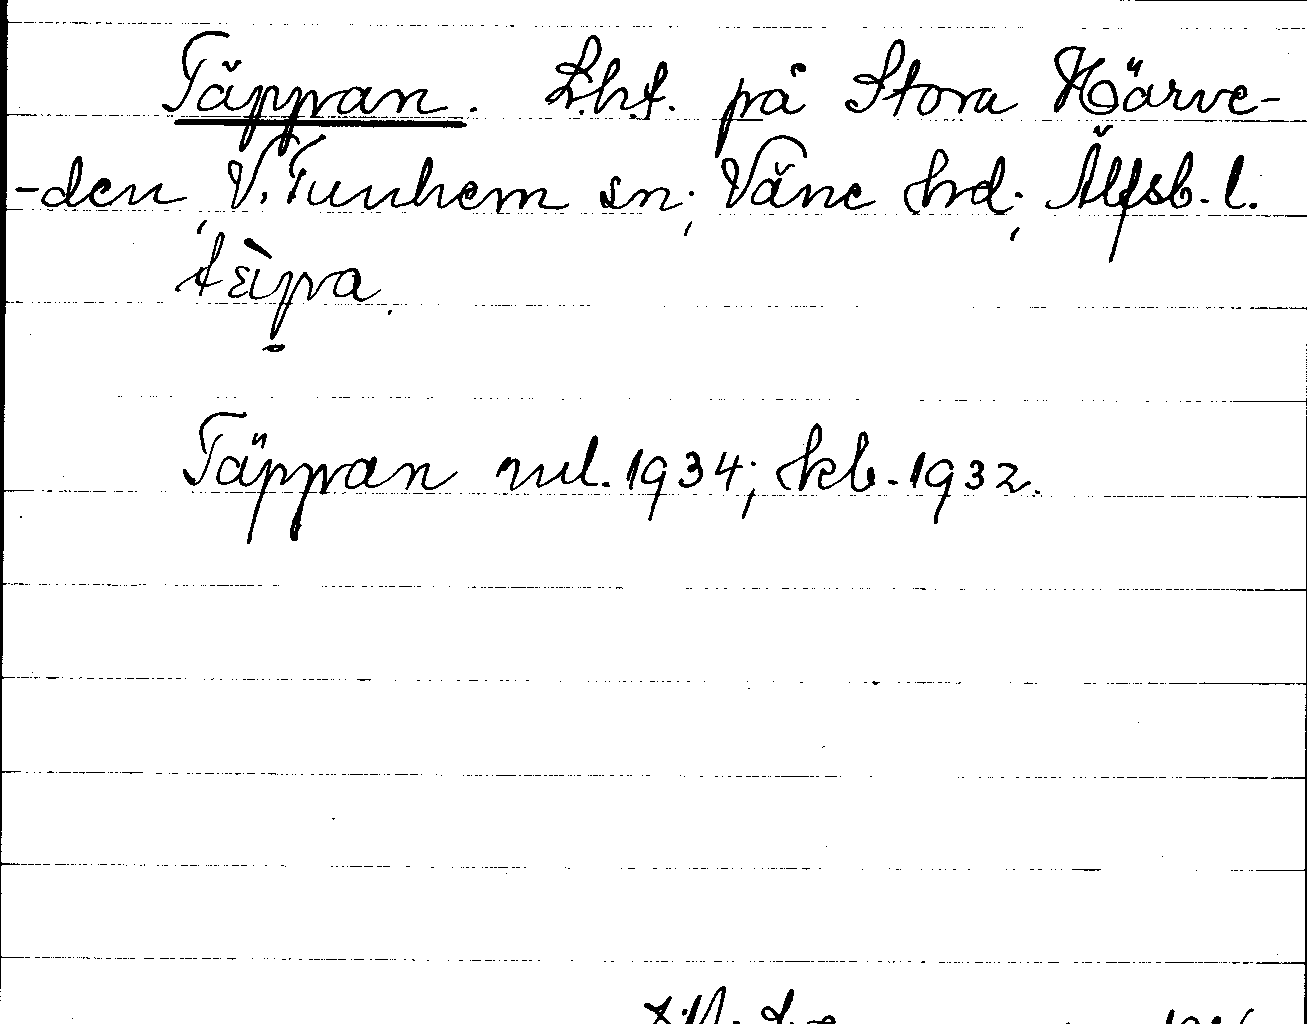 Täppan. Lht. på Stora Härve-
-den, V. Tunhem sn; Väne hd; Älfsb. l.
tὲp̱a.
Täppan ml. 1934; kb. 1932.